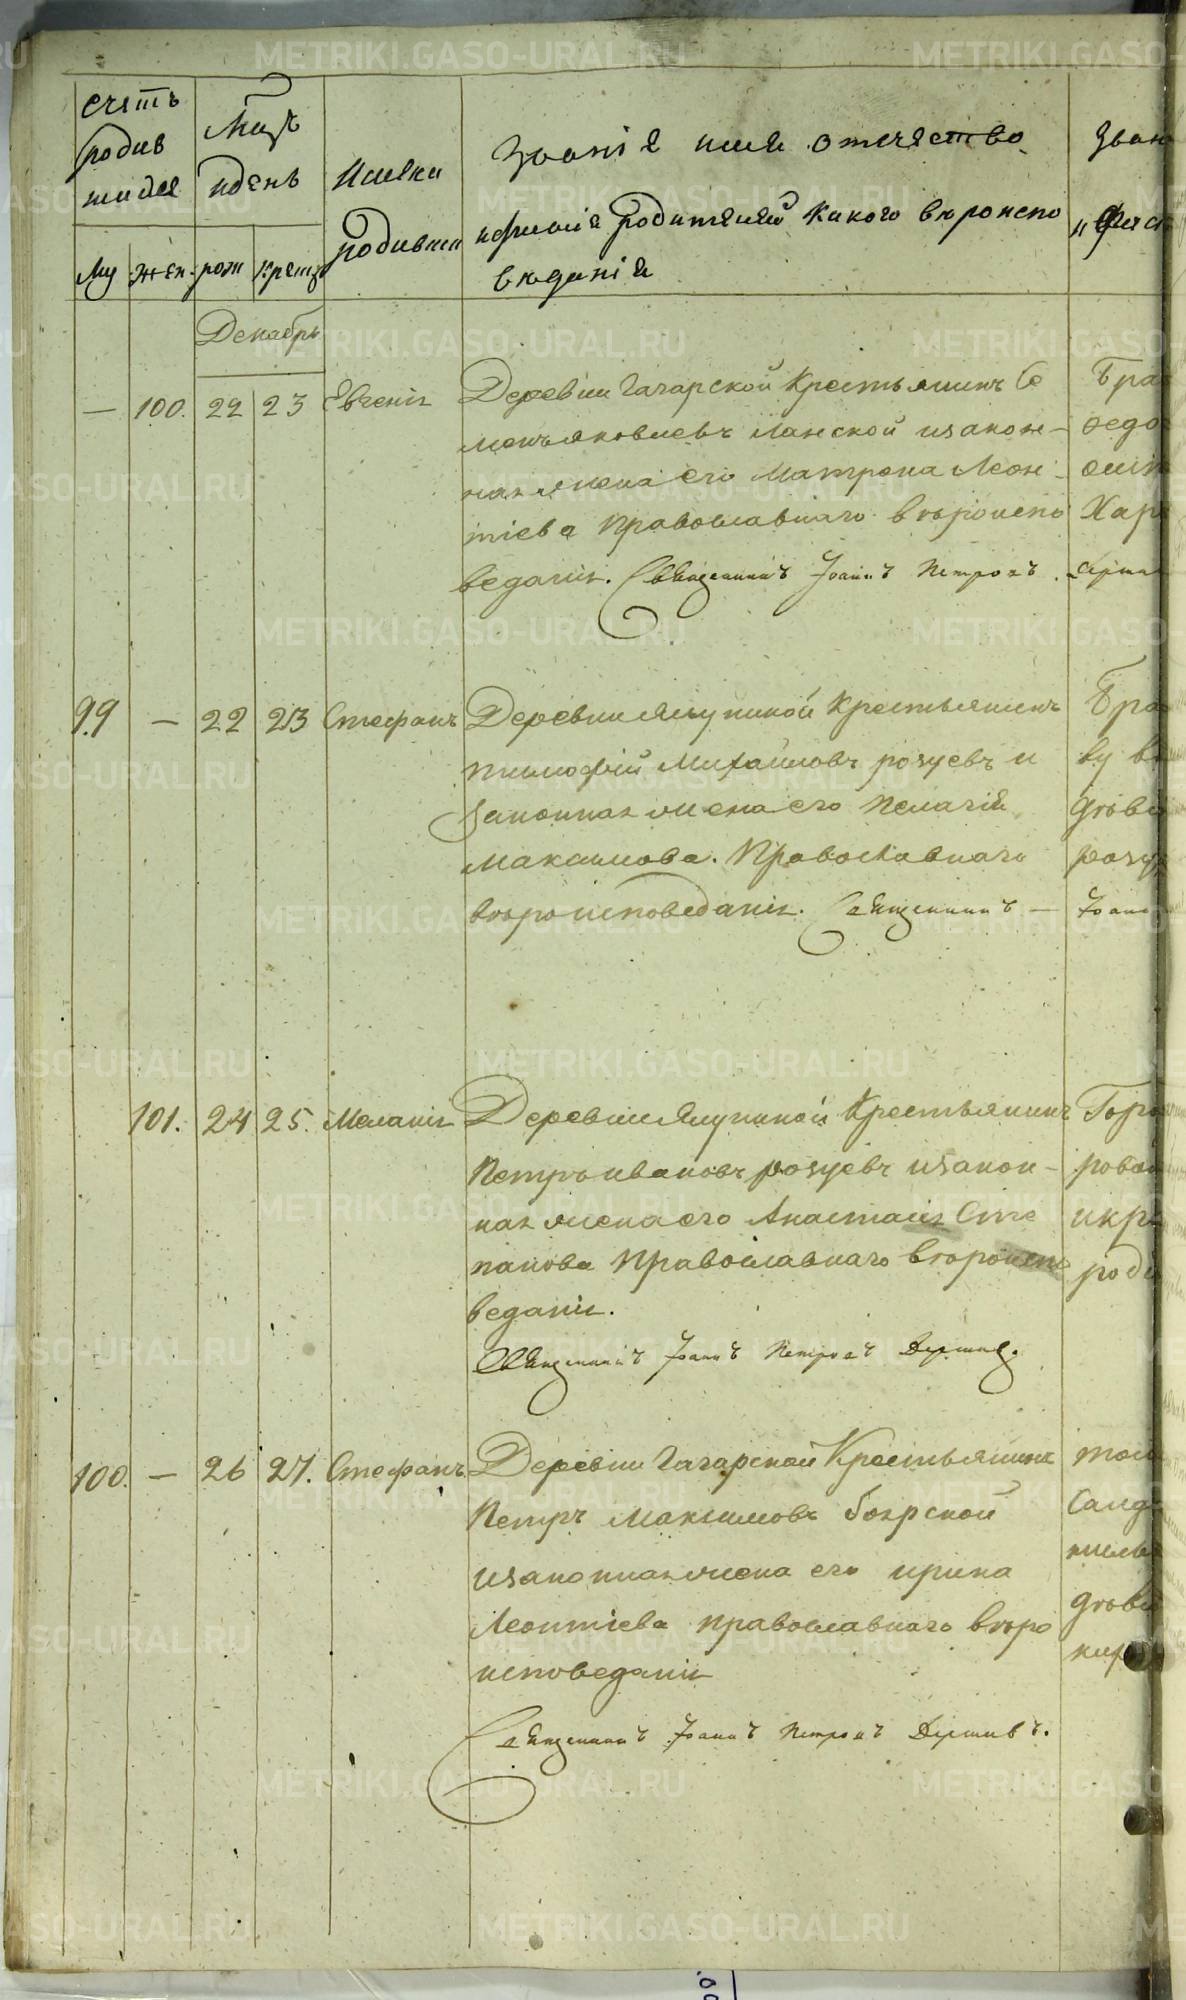 METRIKI.GASO-URAL.RU
счетъ родив шихся
Мцъ и день
Имяна родивши
Званiя имя отечество
и фамилiя родителей какого вероиспо
веданiя
Зван
Му жен рож крещ
Декабрь
— 100. 22 23 Евгенiя
Деревни Гагарской Крестьянинъ Се
менъ яковлевъ Ланской изакон-
ная жена его Матрона Леон-
тiева Православнаго вѣроиспо
веданiя. Священникъ Iоаннъ Петровъ
Бра
ѳедо
Хар
99 — 22 23 Стефанъ
Деревни Ялуниной Крестьянинъ
тимофѣй Михайловъ розуевъ и
законная жена его Пелагiя
Максимова. Православнаго
вѣроисповеданiя. Священникъ —
Бра
ву
розу
Iоанн
101. 24 25. Меланiя
Деревни Ялуниной Крестьянинъ
Петръ ивановъ розуевъ изакон-
ная жена его Анастасiя Сте
панова Православнаго вѣроиспо
веданiя.
Священникъ Iоаннъ Петровъ
Гор
икр
роди
100. — 26 27. Стефанъ
Деревни Гагарской Крестьянинъ
Петръ Максимовъ боярской
изаконная жена его ирина
Леонтiева православнаго вѣро
исповеданiя
Священникъ Iоаннъ Петровъ
того
Салд